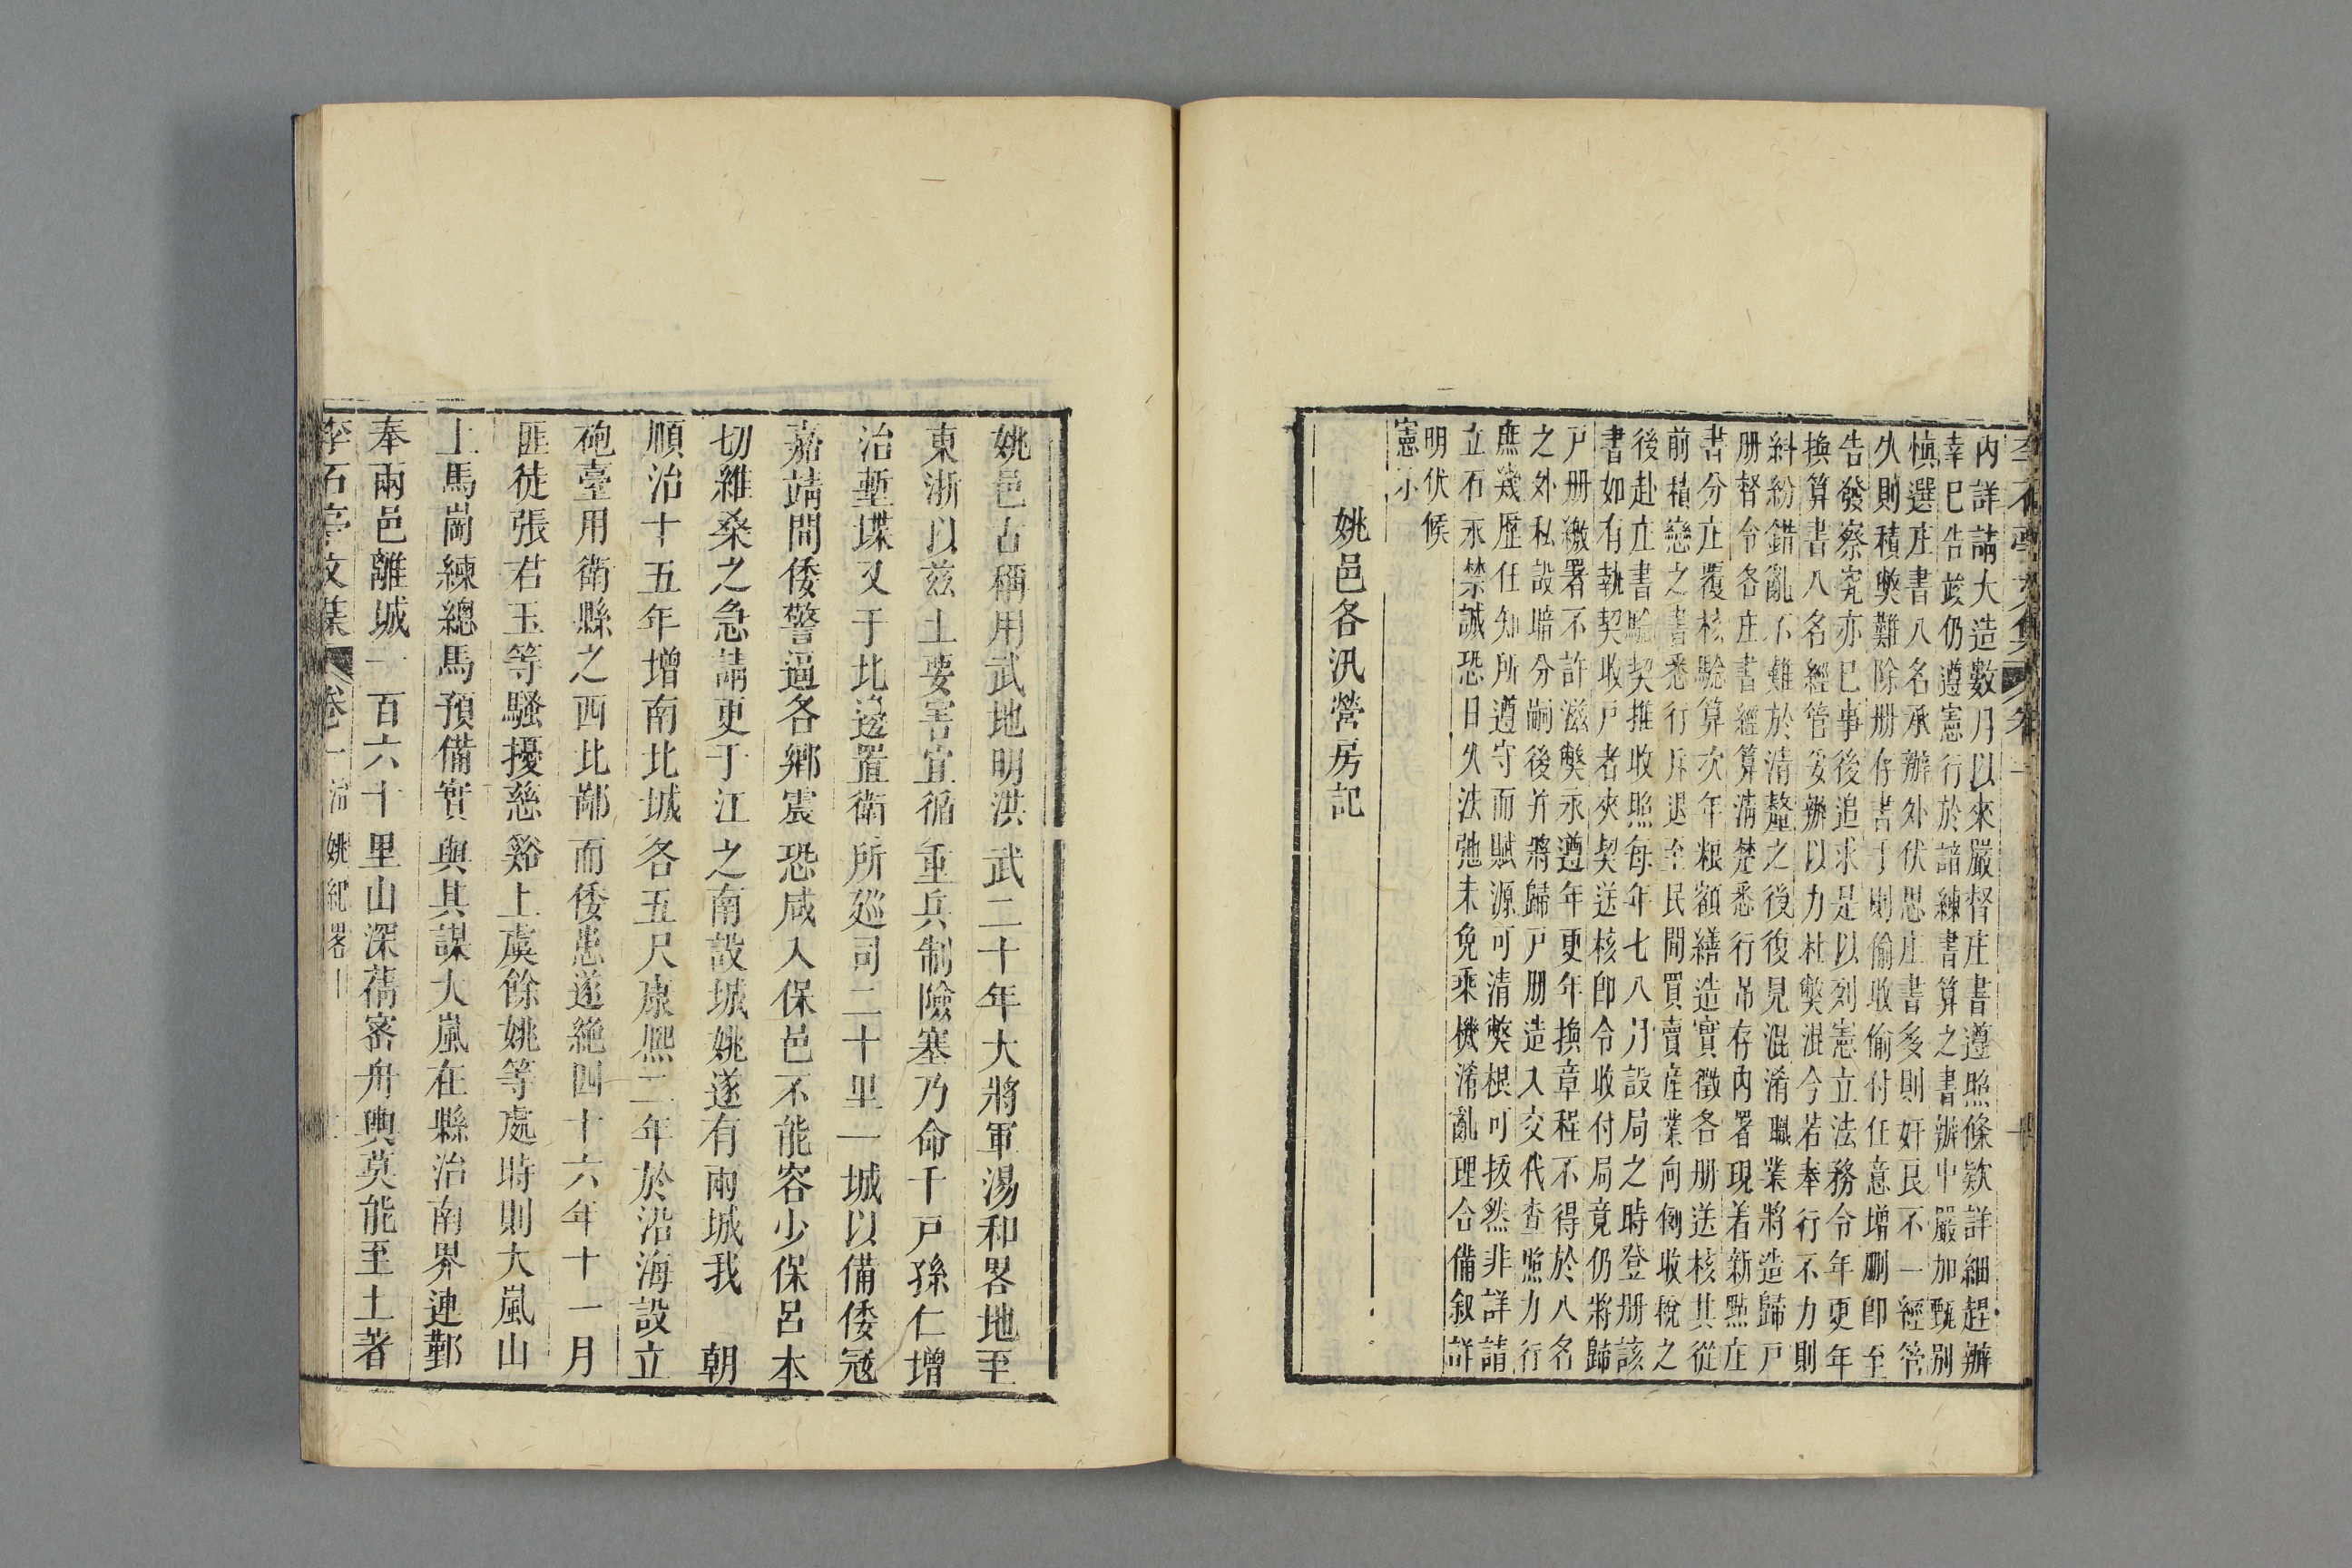 內詳請大造數月以來嚴督庄書遵照條欵詳細趕辦
幸已告竣仍遵憲行於諳練書算之書辦中嚴加甄別
慎選庄書八名承辦外伏思庄書多則奸良不一經管
久則積獘難除册存書手則偷收偷付任意增刪卽至
告發察究亦已事後追求是以列憲立法務令年更年
換算書八名經管妥辦以力杜獘混今若奉行不力則
糾紛錯亂不難於清釐之後復見混淆職業將造歸戸
册督令各庄書經算淸楚悉行吊存內署現着新㸃庄
書分庄覆核驗算次年粮額繕造實徵各册送核其從
前積戀之書悉行斥退至民間買賣産業向例收稅之
後赴庄書騐契推收照每年七八月設局之時登册該
書如有執契收戸者夾契送核卽令收付局竟仍將歸
戸册繳署不許滋獘永遵年更年換章程不得於八名
之外私設暗分嗣後并將歸戸册造入交代查照力行
庶幾歷任知所遵守而賦源可清獘根可抜然非詳請
立石永禁誠恐日久法弛未免乘機淆亂理合備叙詳
明伏候
憲示
姚邑各汛營房記
姚邑古稱用武地明洪武二十年大將軍湯和畧地至
東浙以茲土要害宜循重兵制險塞乃命千戸孫仁增
治塹堞又于北邊置衛所廵司二十里一城以備倭冦
嘉靖間倭警逼各鄉震恐咸入保邑不能容少保呂本
切維桑之急請更于江之南設城姚遂有兩城我　朝
順治十五年增南北城各五尺康熙二年於沿海設立
砲臺用衛縣之西北鄙而倭患遂絶四十六年十一月
匪徒張君玉等騷擾慈谿上虞餘姚等處時則大嵐山
上馬崗練總馬預備實與其謀大嵐在縣治南界連鄞
奉兩邑離城一百六十里山深菁密舟輿莫能至土著
李石亭文集　卷一　治姚紀畧